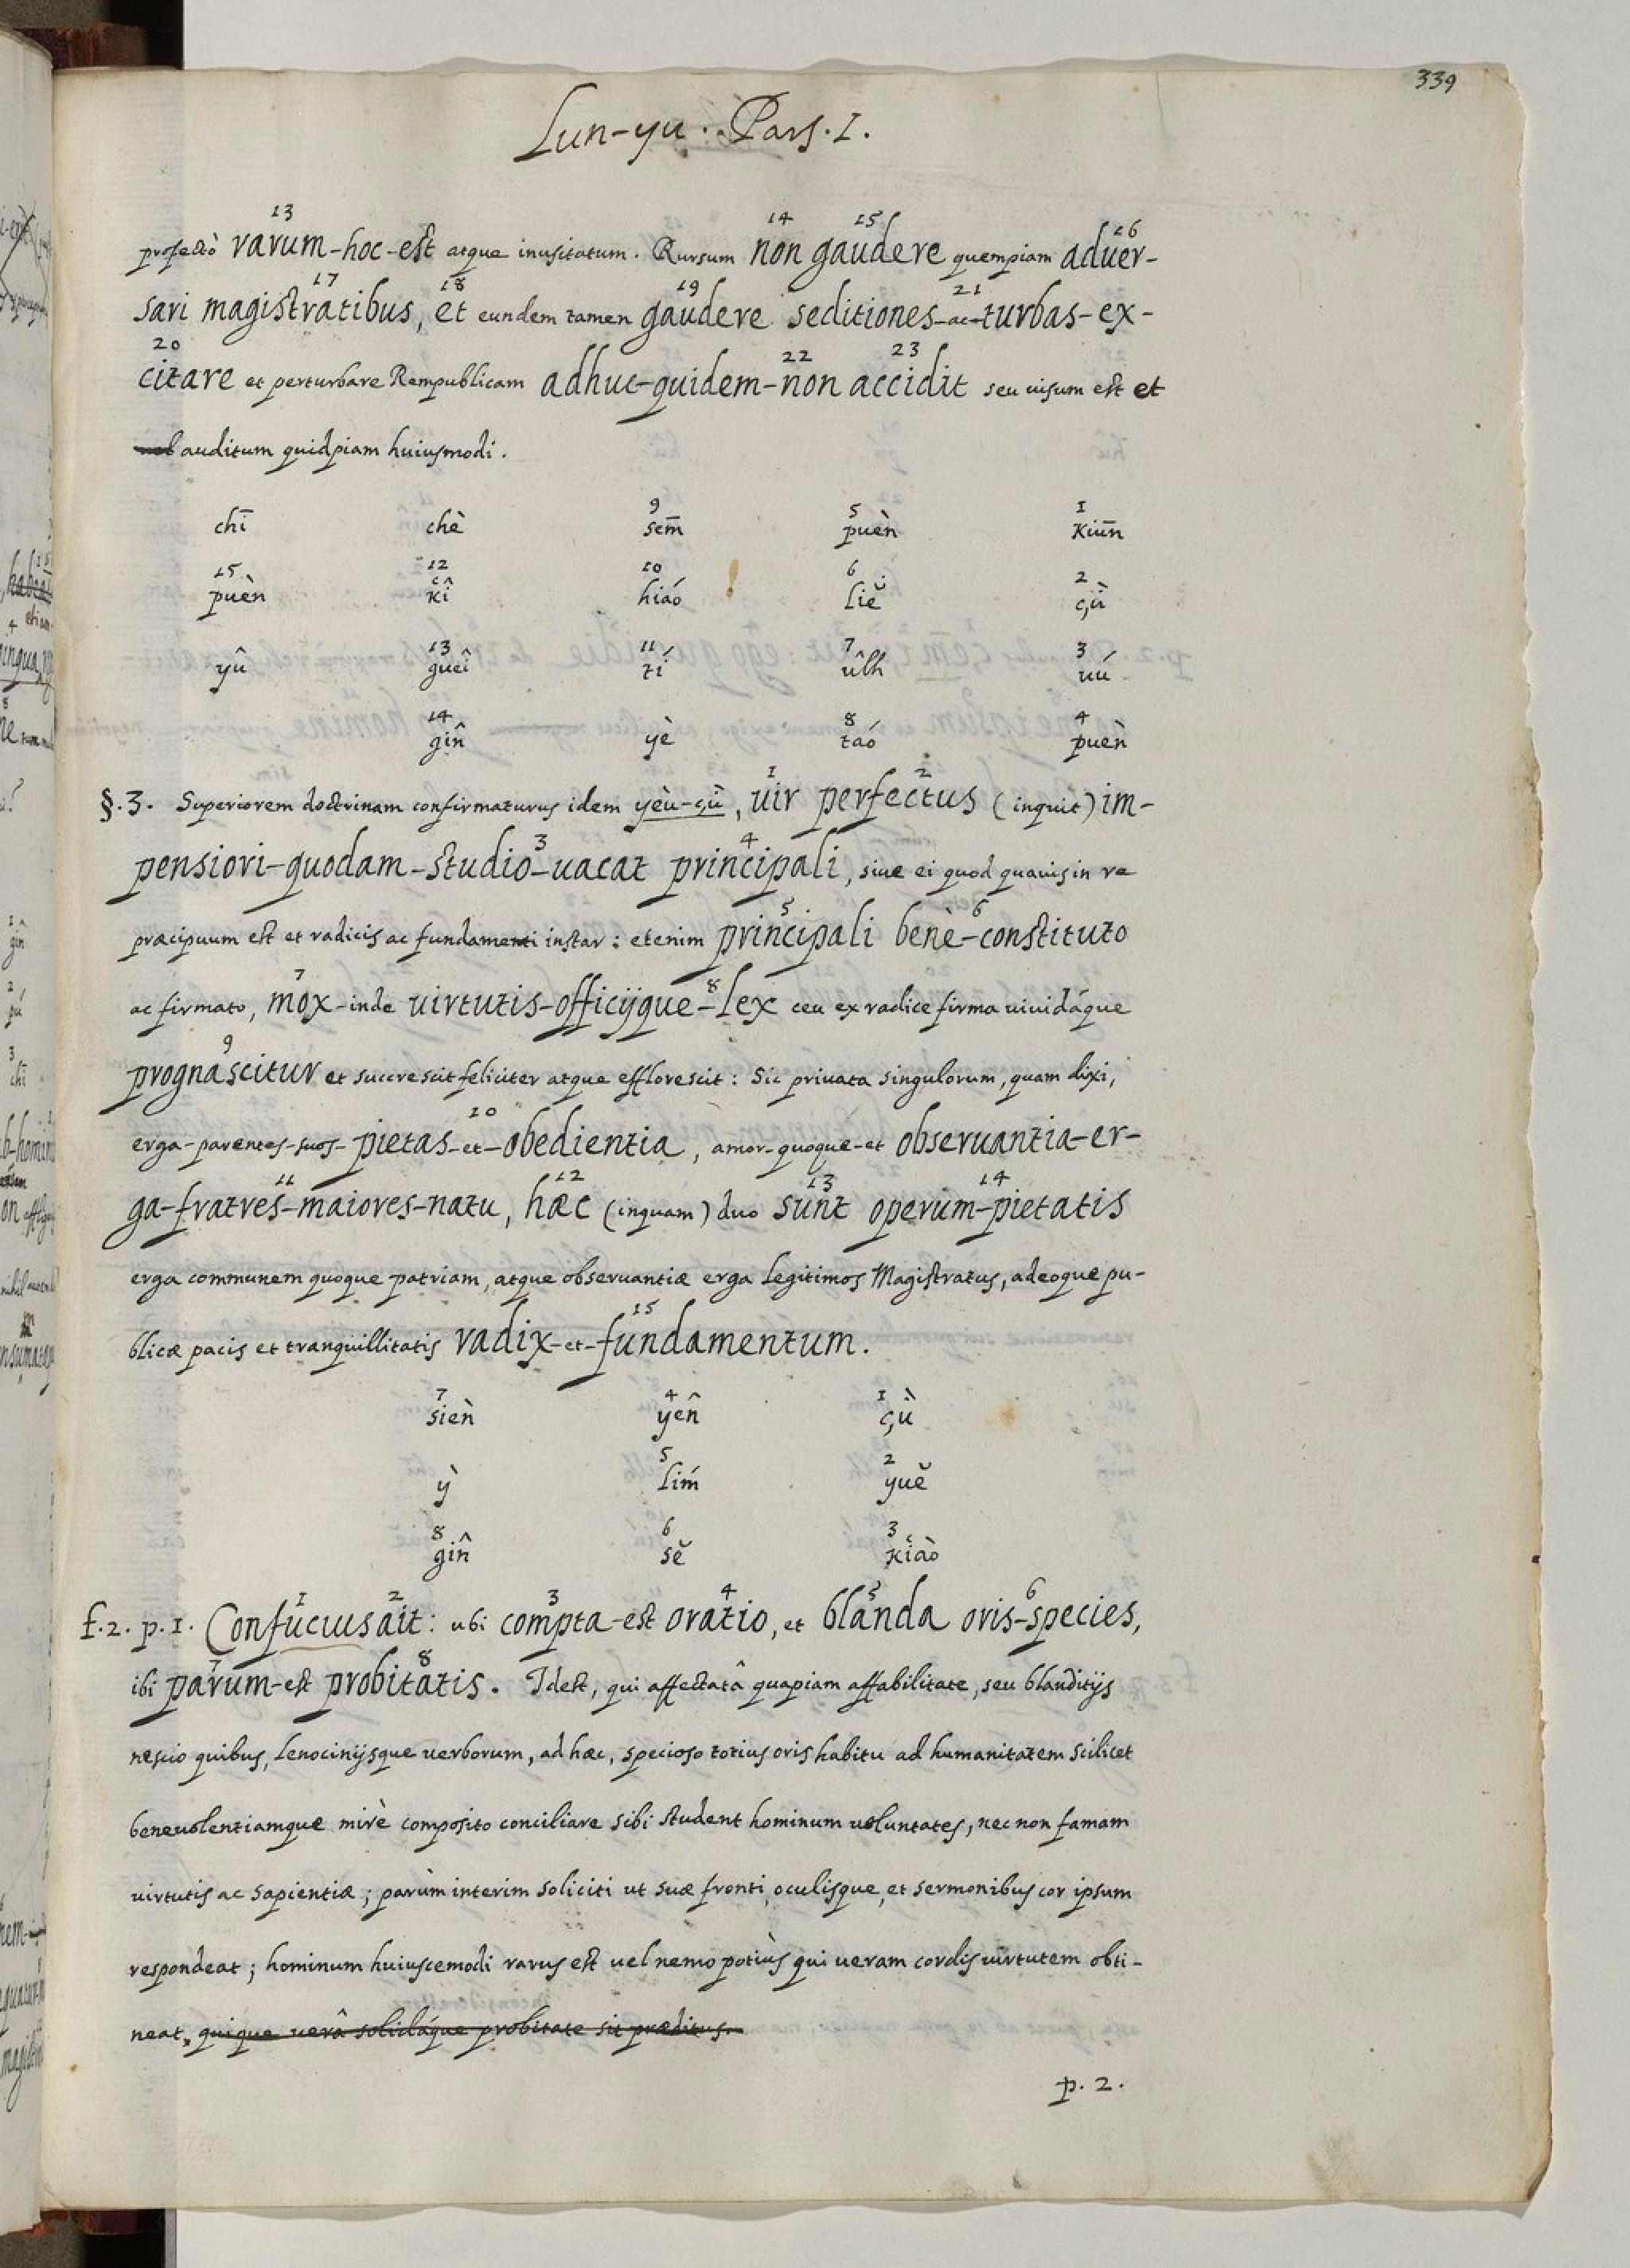 339
Lun-yu. Pars. I.
13 14 15 16
profectò rarum-hoc-est atque inusitatum. Rursum non gaudere quempiam aduer-
17 18 19 21
sari magistratibus, et eundem tamen gaudere seditiones-ac-turbas-ex-
20 22 23
citare et perturbare Rempublicam adhuc-quidem-non accidit seu uisum est et
uel auditum quidpiam huiusmodi.
9 5 1
chī chè sem̄ puèn Kiūn
15 12 10 6 2
puèn kî hiáo liĕ çù
13 11 7 3
yû gueî tí ûlh uú
14 8 4
gîn yè táo puèn
1 2
§.3. Superiorem doctrinam confirmaturus idem yèu-çù, uir perfectus (inquit) im-
3 4
pensiori-quodam-studio-uacat principali, siue ei quod quauis in re
5 6
præcipuum est et radicis ac fundamenti instar: etenim principali benè-constituto
7 8
ac firmato, mox-inde uirtutis-officijque-lex ceu ex radice firma uiuidáque
9
prognascitur et succrescit feliciter atque efflorescit: Sic priuata singulorum, quam dixi,
10
erga-parentes-suos-pietas-et-obedientia, amor-quoque-et obseruantia-er-
11 12 13 14
ga-fratres-maiores-natu, hæc (inquam) duo sunt operum-pietatis
erga communem quoque patriam, atque obseruantiæ erga Legitimos Magistratus, adeoque pu-
15
blicæ pacis et tranquillitatis radix-et-fundamentum.
7 4 1
sièn yên çù
5 2
ỳ lím yuĕ
8 6 3
gîn sĕ kiào
1 2 3 4 5 6
f.2. p.1. Confucius ait: ubi compta-est oratio, et blanda oris-species,
7 8
ibi parum-est probitatis. Idest, qui affectatâ quapiam affabilitate, seu blanditijs
nescio quibus, Lenocinijsque uerborum, ad hæc, specioso totius oris habitu ad humanitatem scilicet
beneuolentiamque mirè composito conciliare sibi student hominum uoluntates, nec non famam
uirtutis ac sapientiæ; parùm interim soliciti ut suæ fronti, oculisque, et sermonibus cor ipsum
respondeat; hominum huiuscemodi rarus est uel nemo potiùs qui ueram cordis uirtutem obti-
neat, quique uerâ solidáque probitate sit præditus.
p. 2.